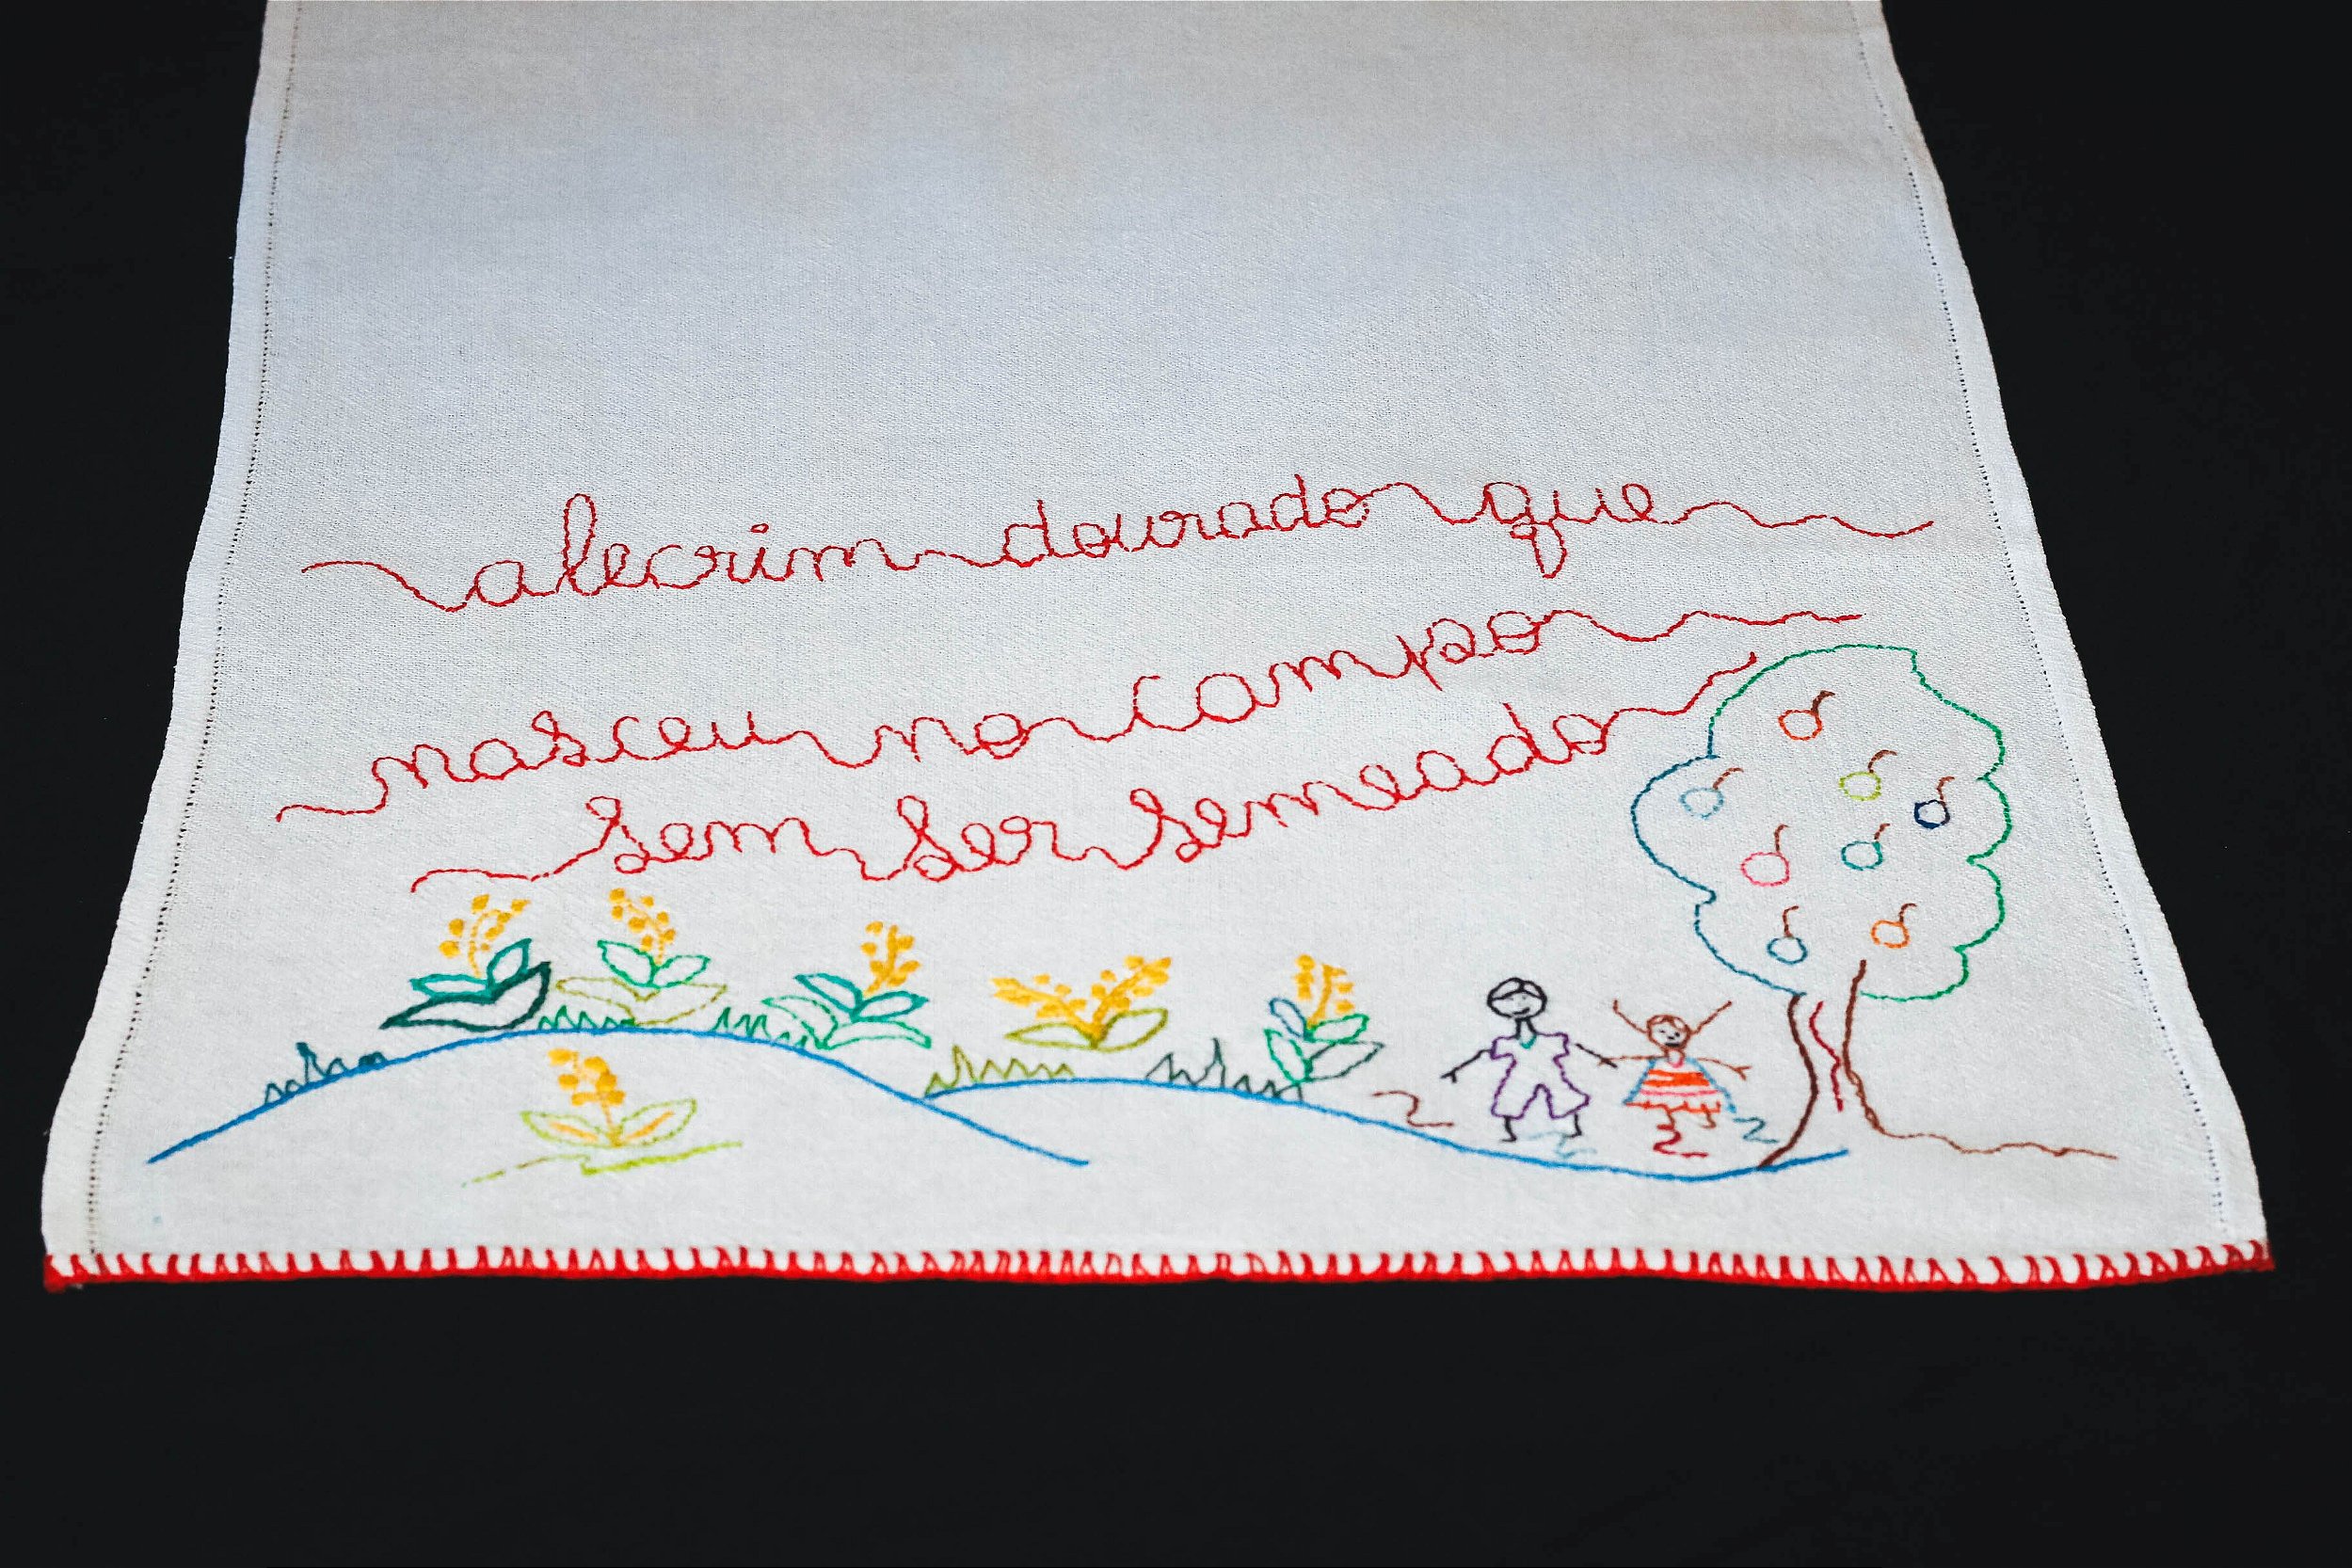 alecrim dourado que
nasceu no campo
sem ser semeado